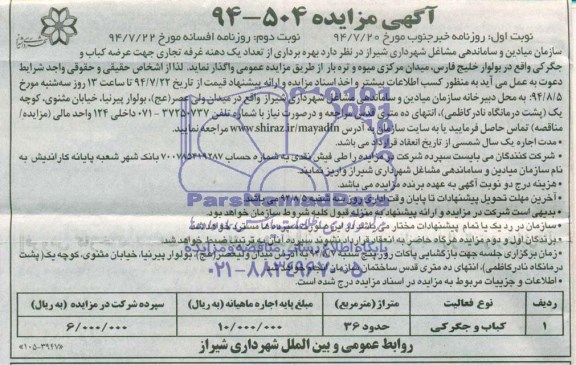 آگهی مزایده ۵۰۴-۹۴
نوبت اول: روزنامه خبرجنوب مورخ ۹۴/۷/۲۰ نوبت دوم: روزنامه افسانه مورخ ۹۴/۷/۲۲
سازمان میادین و ساماندهی مشاغل شهرداری شیراز در نظر دارد بهره برداری از تعداد یک دهنه غرفه تجاری جهت عرضه کباب و
جگرکی واقع در بولوار خلیج فارس، میدان مرکزی میوه و تره بار از طریق مزایده عمومی واگذار نماید. لذا از اشخاص حقیقی و حقوقی واجد شرایط
دعوت به عمل می آید به منظور کسب اطلاعات بیشتر و اخذ اسناد مزایده و ارائه پیشنهاد قیمت از تاریخ ۹۴/۷/۲۲ تا ساعت ۱۳ روز سه شنبه مورخ
۹۴/۸/۵ به محل دبیرخانه سازمان میادین و ساماندهی مشاغل شهرداری شیراز واقع در میدان ولی عصر(عج)، بولوار پیرنیا، خیابان مثنوی، کوچه
یک (پشت درمانگاه نادر کاظمی)، انتهای ده متری قدس مراجعه و درصورت نیاز با شماره تلفن ۳۷۲۵۰۷۳۷-۰۷۱ داخلی ۱۲۴ واحد مالی (مزایده/
مناقصه) تماس حاصل فرمایید یا به سایت سازمان به آدرس www.shiraz.ir/mayadin مراجعه نمایید.
- مدت اجاره یک سال شمسی از تاریخ انعقاد قرارداد می باشد.
- شرکت کنندگان می بایست سپرده شرکت در مزایده را طی فیش نقدی به شماره حساب ۷۰۰۷۸۵۴۱۹۲۸۷ بانک شهر شعبه پایانه کاراندیش به
نام سازمان میادین و ساماندهی مشاغل شهرداری شیراز واریز نمایند.
- هزینه درج دو نوبت آگهی به عهده برنده مزایده می باشد.
- آخرین مهلت تحویل پیشنهادات تا پایان وقت اداری روز سه شنبه ۹۴/۸/۵ می باشد.
- بدیهی است شرکت در مزایده و ارائه پیشنهاد به منزله قبول کلیه شروط سازمان خواهد بود.
- سازمان در رد یک یا تمام پیشنهادات مختار
- برندگان اول و دوم مزایده هرگاه حاضر به انعقاد قرارداد نشوند سپرده آنان به ترتیب ضبط خواهد شد.
- زمان برگزاری جلسه جهت بازگشایی پاکات روز پنج شنبه ۹۴/۸/۷ به آدرس میدان ولیعصر(عج)، بولوار پیرنیا، خیابان مثنوی، کوچه یک (پشت
درمانگاه نادر کاظمی)، انتهای ده متری قدس ساختمان سازمان
- اطلاعات و جزییات مربوط به مزایده در اسناد مزایده درج شده است.
ردیف نوع فعالیت متراژ (مترمربع) مبلغ پایه اجاره ماهیانه (به ریال) سپرده شرکت در مزایده (به ریال)
۱ کباب و جگرکی حدود ۳۶ ۱۰/۰۰۰/۰۰۰ ۶/۰۰۰/۰۰۰
روابط عمومی و بین الملل شهرداری شیراز
«۱۰۵-۳۹۴۷»
ParsNamadData
پایگاه اطلاع رسانی مناقصه و مزایده
۰۲۱-۸۸۳۴۹۶۷۰-۵